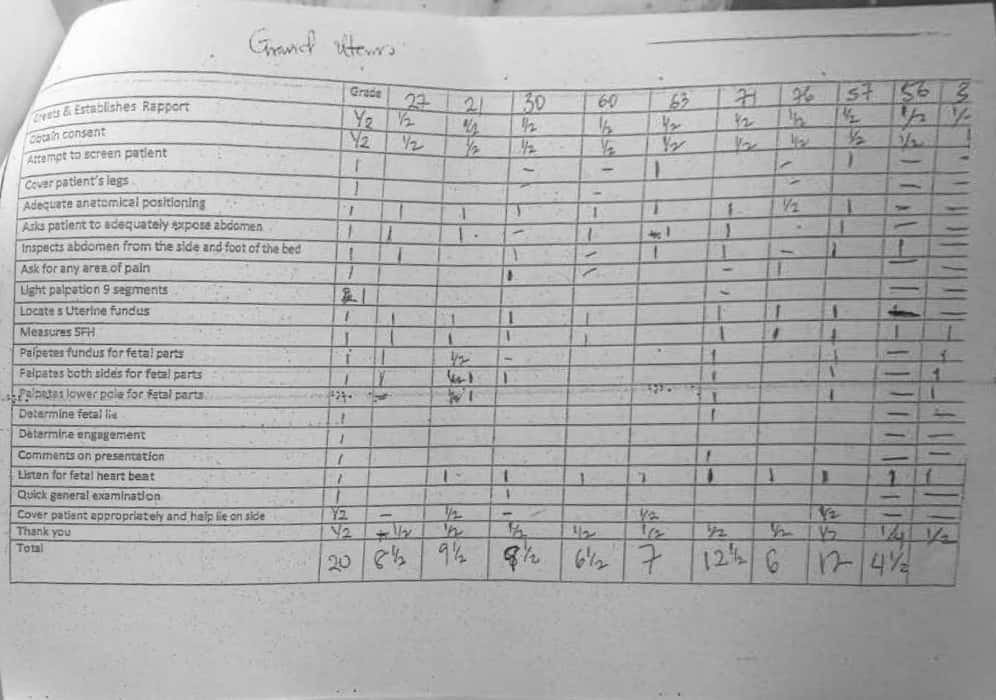 Gravid uterus
Grade 27 21 30 60 63 71 76 57 56 3
Greets & Establishes Rapport ½ ½ ½ ½ ½ ½ ½ ½ ½ ½ ½
Obtain consent ½ ½ ½ ½ ½ ½ ½ ½ ½ ½
Attempt to screen patient 1 – – 1 – 1 – –
Cover patient's legs 1 – – – – –
Adequate anatomical positioning 1 1 1 1 1 1 1 ½ 1 – –
Asks patient to adequately expose abdomen 1 1 1 – 1 1 1 1 – –
Inspects abdomen from the side and foot of the bed 1 1 1 – 1 1 – 1 1 –
Ask for any area of pain 1 1 – – 1 – –
Light palpation 9 segments 1 – – –
Locate s Uterine fundus 1 1 1 1 1 1 1 1 – –
Measures SFH 1 1 1 1 1 1 1 1 1 1
Palpates fundus for fetal parts 1 1 ½ – 1 1 – 1
Palpates both sides for fetal parts 1 1 1 1 1 1 – 1
Palpates lower pole for fetal parts – 1 1 1 – 1
Determine fetal lie 1 1 – –
Determine engagement 1 – –
Comments on presentation 1 1 – –
Listen for fetal heart beat 1 1 1 1 1 1 1 1 1 1
Quick general examination 1 1 – –
Cover patient appropriately and help lie on side ½ – ½ – – ½ ½ – –
Thank you ½ ½ ½ ½ ½ ½ ½ ½ ½ ½
Total 20 8½ 9½ 8½ 6½ 7 12½ 6 12 4½